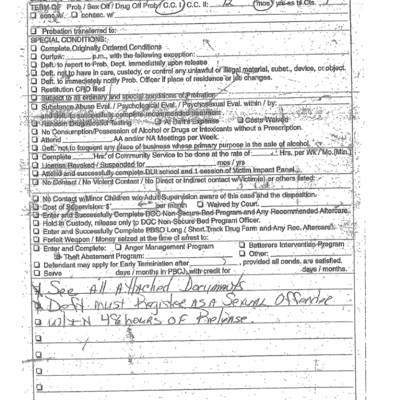 TERM OF Prob / Sex Off / Drug Off Prob / C.C. I / C.C. II: 12 mos / yrs as to Cts.
conc. w/ consec. w/
Probation transferred to:
SPECIAL CONDITIONS:
Complete Originally Ordered Conditions
Curfew: p.m., with the following exception:
Deft. to report to Prob. Dept. immediately upon release
Deft. not to have in care, custody, or control any unlawful or illegal material, subst., device, or object.
Deft. to immediately notify Prob. Officer if place of residence or job changes.
Restitution CPO filed
Subject to all ordinary and special conditions of Probation
Substance Abuse Eval. / Psychological Eval. / Psychosexual Eval. within / by:
and deft. to successfully complete recommended treatment
Random Drug/Alcohol Testing At Deft's Expense Costs Waived
No Consumption/Possession of Alcohol or Drugs or Intoxicants without a Prescription.
Attend AA and/or NA Meetings per Week.
Deft. not to frequent any place of business whose primary purpose is the sale of alcohol.
Complete Hrs. of Community Service to be done at the rate of Hrs. per Wk / Mo. (Min.)
License Revoked / Suspended for mos / yrs
Attend and successfully complete DUI school and 1 session of Victim Impact Panel.
No Contact / No Violent Contact / No Direct or indirect contact w/Victim(s) or others listed:
No Contact w/Minor Children w/o Adult Supervision aware of this case and the disposition.
Cost of Supervision: $ per month Waived by Court.
Enter and Successfully Complete DOC Non-Secure Bed Program and Any Recommended Aftercare.
Hold in Custody, release only to DOC Non-Secure Bed Program Officer.
Enter and Successfully Complete PBSO Long / Short Track Drug Farm and Any Rec. Aftercare.
Forfeit Weapon / Money seized at the time of arrest to:
Enter and Complete: Anger Management Program Batterers Intervention Program
Theft Abatement Program: Other:
Defendant may apply for Early Termination after , provided all conds. are satisfied.
Serve days / months in PBCJ with credit for days / months.
See All Attached Documents
Deft must Register AS A Sexual Offender
W/IN 48 hours OF Release